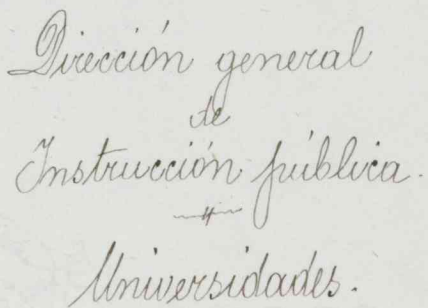 Dirección general
de
Instrucción pública.
Universidades.